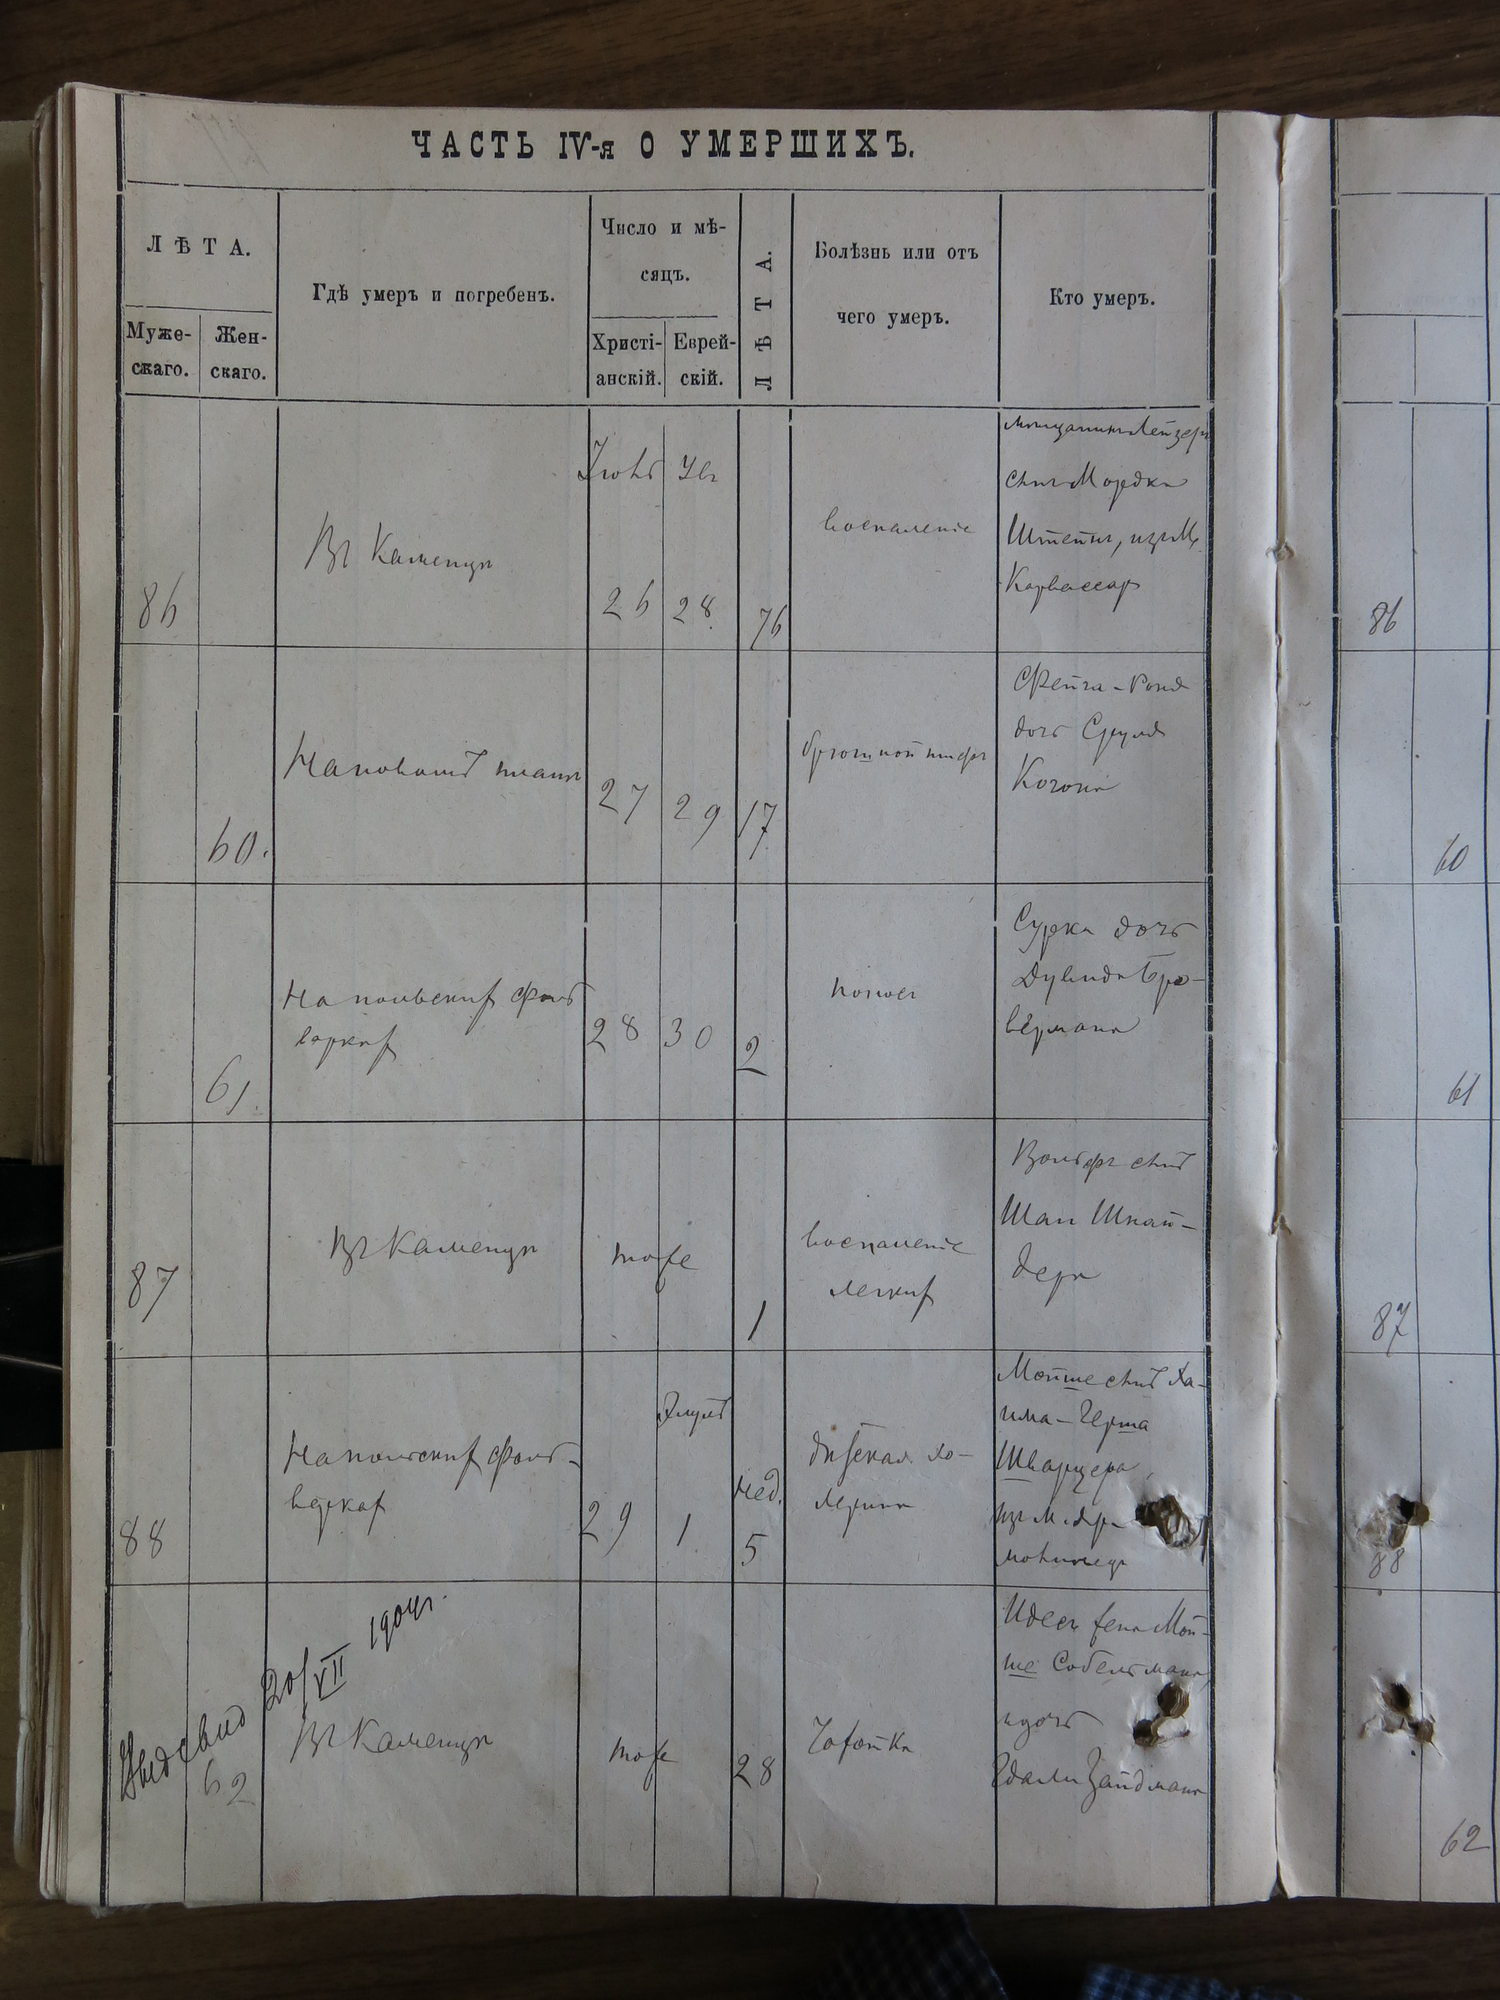 ЧАСТЬ IV-я О УМЕРШИХЪ.
ЛѢТА.
Муже-
скаго.
Жен-
скаго.
Гдѣ умеръ и погребенъ.
Число и мѣ-
сяцъ.
Христі-
анскій.
Еврей-
скій.
ЛѢТА.
Болѣзнь или отъ
чего умеръ.
Кто умеръ.
86
Въ Каменцѣ
26
28
76
воспаленіе
мѣщанинъ Лейзеръ
сынъ Мордка
Штейнъ, изъ м.
Карвасеаръ
86
60.
На новомъ планѣ
27
29
17
брюшной тифъ
Фейга-Рося
дочь Сруля
Когона
60
61.
На польскихъ фоль
варкахъ
28
30
2
поносъ
Сурка дочь
Дувида Бро-
вермана
61
87
Въ Каменцѣ
тоже
1
воспаленіе
легкихъ
Вольфъ сынъ
Шаи Шнай-
дера
87
88
На польскихъ фоль-
варкахъ
29
Элулъ
1
нед.
5
дѣтская хо-
лерина
Мойше сынъ Ха-
има-Герша
Шварцера,
изъ м. Яр-
молинецъ
88
Выд свид 20/VII 1904г.
62
Въ Каменцѣ
тоже
28
Чахотка
Идесъ жена Мой-
ше Собельмана,
и дочь
Гдали Зайдмана
62